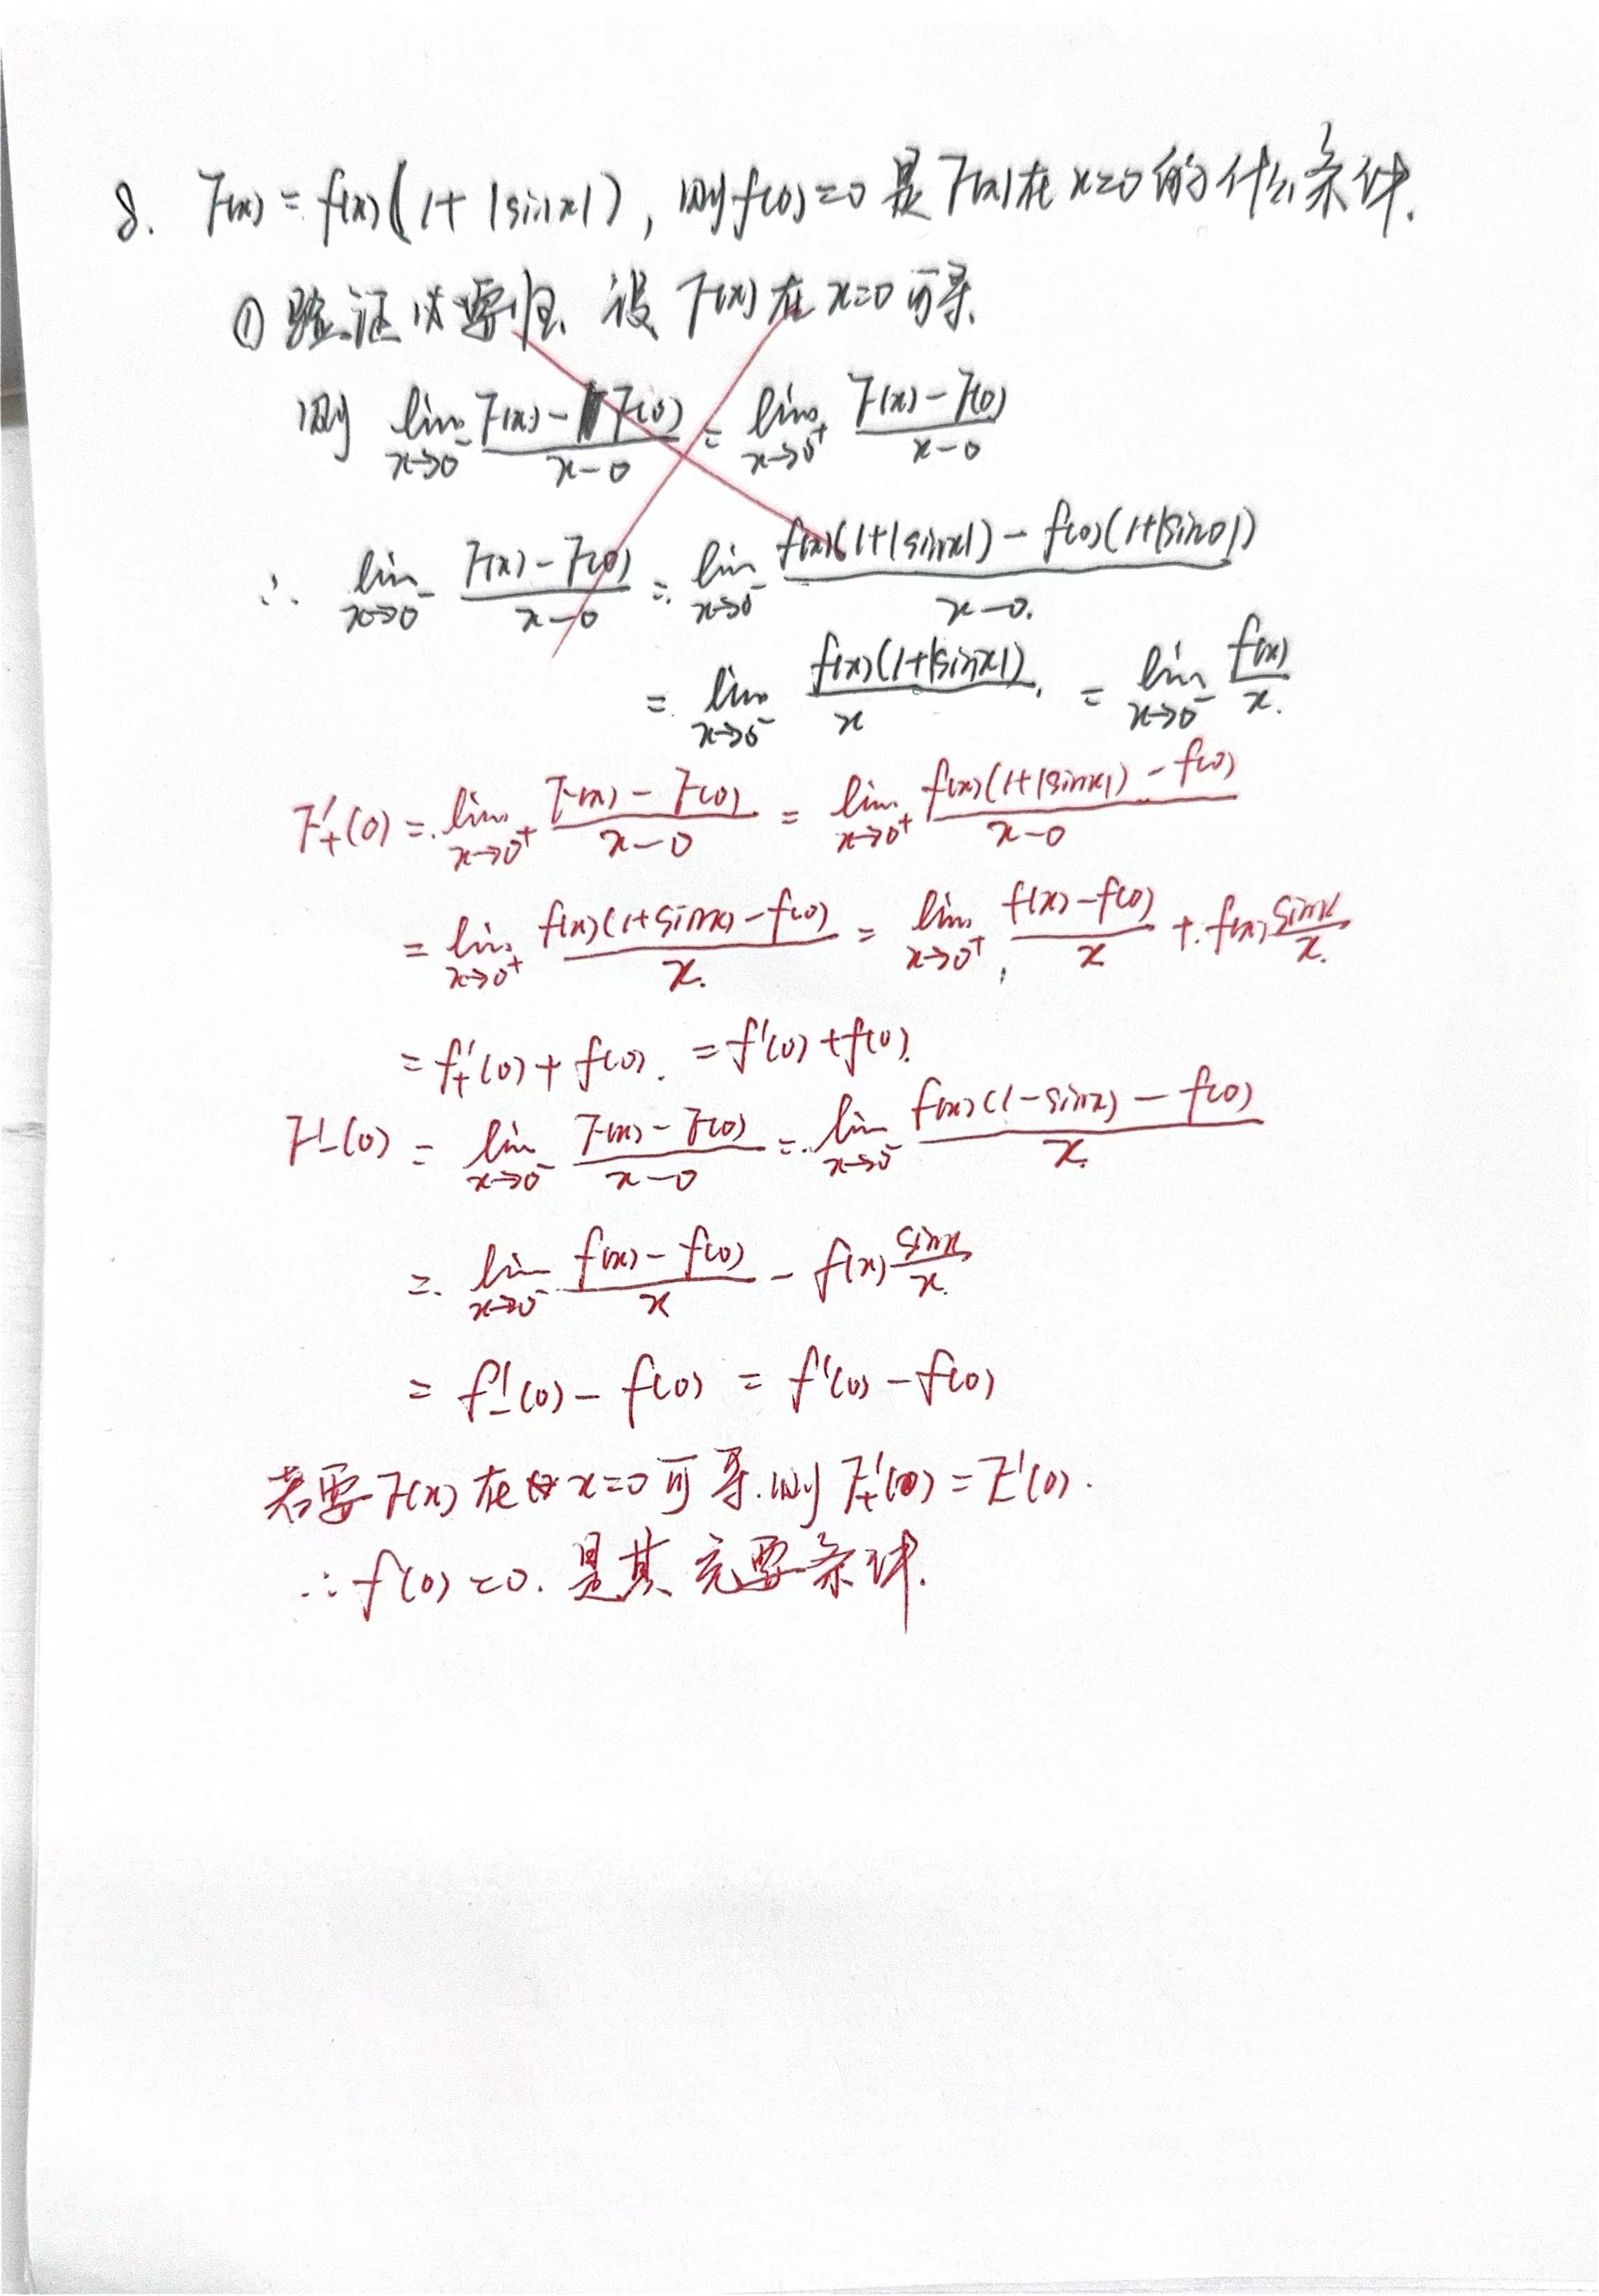 8. F(x) = f(x)(1+|sinx|), 则f(0)=0 是 F(x)在 x=0 的什么条件.
① 验证必要性. 设 F(x) 在 x=0 可导.
则 lim_{x→0⁻} (F(x)-F(0))/(x-0) = lim_{x→0⁺} (F(x)-F(0))/(x-0)
∴ lim_{x→0⁻} (F(x)-F(0))/(x-0) = lim_{x→0⁻} (f(x)(1+|sinx|)-f(0)(1+|sin0|))/(x-0)
= lim_{x→0⁻} f(x)(1+|sinx|)/x = lim_{x→0⁻} f(x)/x.
F'₊(0) = lim_{x→0⁺} (F(x)-F(0))/(x-0) = lim_{x→0⁺} (f(x)(1+|sinx|)-f(0))/(x-0)
= lim_{x→0⁺} (f(x)(1+sinx)-f(0))/x = lim_{x→0⁺} (f(x)-f(0))/x + f(x) sinx/x.
= f'₊(0)+f(0). = f'(0)+f(0).
F'₋(0) = lim_{x→0⁻} (F(x)-F(0))/(x-0) = lim_{x→0⁻} (f(x)(1-sinx)-f(0))/x.
= lim_{x→0⁻} (f(x)-f(0))/x - f(x) sinx/x.
= f'₋(0)-f(0) = f'(0)-f(0)
若要F(x) 在 x=0 可导.则 F'₊(0)=F'₋(0).
∴ f(0)=0. 是其 充要条件.